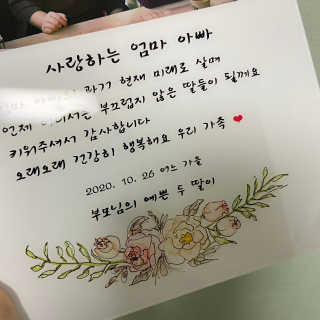 사랑하는 엄마 아빠
과거 현재 미래로 살며
언제 부끄럽지 않은 딸들이 될게요
키워주셔서 감사합니다
오래오래 건강히 행복해요 우리 가족
2020. 10. 26 어느 가을
부모님의 예쁜 두 딸이